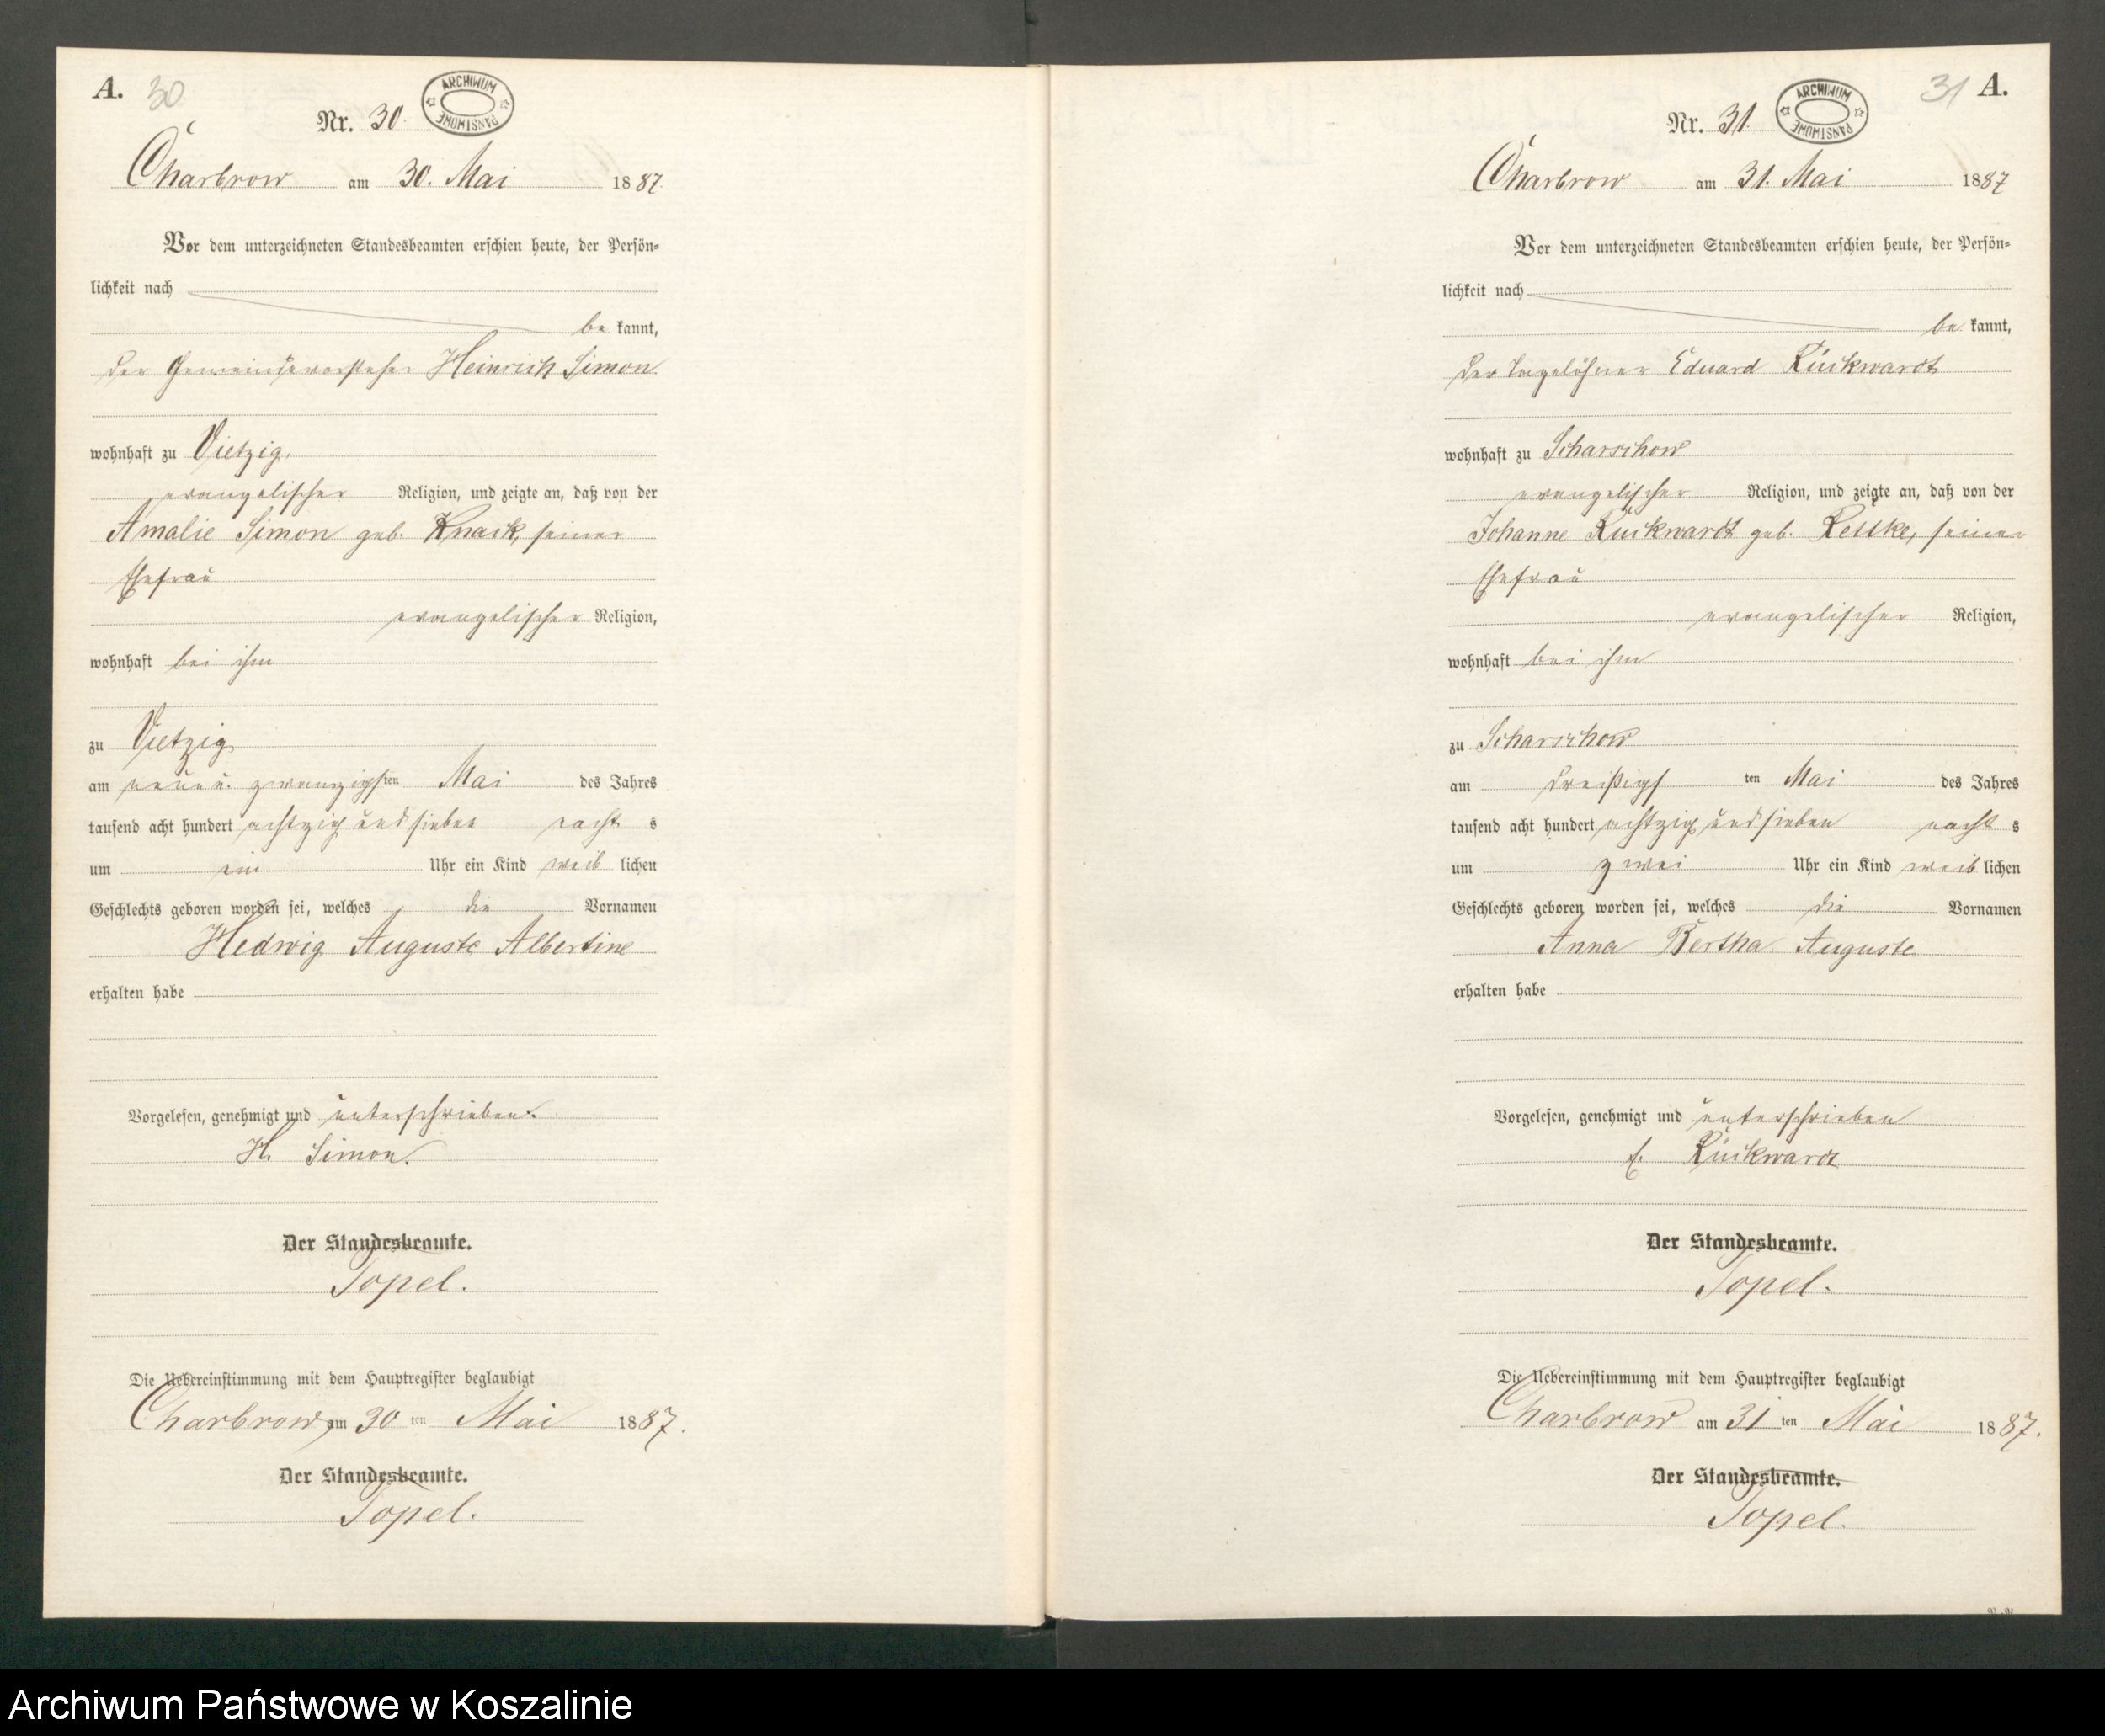 A. 30
ARCHIWUM PAŃSTWOWE
Nr. 30
Charbrow am 30. Mai 1887.
Vor dem unterzeichneten Standesbeamten erschien heute, der Persön-
lichkeit nach
be kannt,
der Gemeindevorsteher Heinrich Simon
wohnhaft zu Vietzig,
evangelischer Religion, und zeigte an, daß von der
Amalie Simon geb. Knack, seiner
Ehefrau
evangelischer Religion,
wohnhaft bei ihm
zu Vietzig
am neun u. zwanzigsten Mai des Jahres
tausend acht hundert achtzig und sieben nacht s
um ein Uhr ein Kind weib lichen
Geschlechts geboren worden sei, welches die Vornamen
Hedwig Auguste Albertine
erhalten habe
Vorgelesen, genehmigt und unterschrieben.
H. Simon.
Der Standesbeamte.
Topel.
Die Uebereinstimmung mit dem Hauptregister beglaubigt
Charbrow, am 30 ten Mai 1887.
Der Standesbeamte.
Topel.
31 A.
ARCHIWUM PAŃSTWOWE
Nr. 31.
Charbrow am 31. Mai 1887
Vor dem unterzeichneten Standesbeamten erschien heute, der Persön-
lichkeit nach
be kannt,
der Tagelöhner Eduard Rückwardt
wohnhaft zu Scharschow
evangelischer Religion, und zeigte an, daß von der
Johanne Rückwardt geb. seiner
Ehefrau
evangelischer Religion,
wohnhaft bei ihm
zu Scharschow
am dreißigs ten Mai des Jahres
tausend acht hundert achtzig und sieben nacht s
um zwei Uhr ein Kind weib lichen
Geschlechts geboren worden sei, welches die Vornamen
Anna Bertha Auguste
erhalten habe
Vorgelesen, genehmigt und unterschrieben
E. Rückwardt
Der Standesbeamte.
Topel.
Die Uebereinstimmung mit dem Hauptregister beglaubigt
Charbrow am 31 ten Mai 1887.
Der Standesbeamte.
Topel.
Archiwum Państwowe w Koszalinie